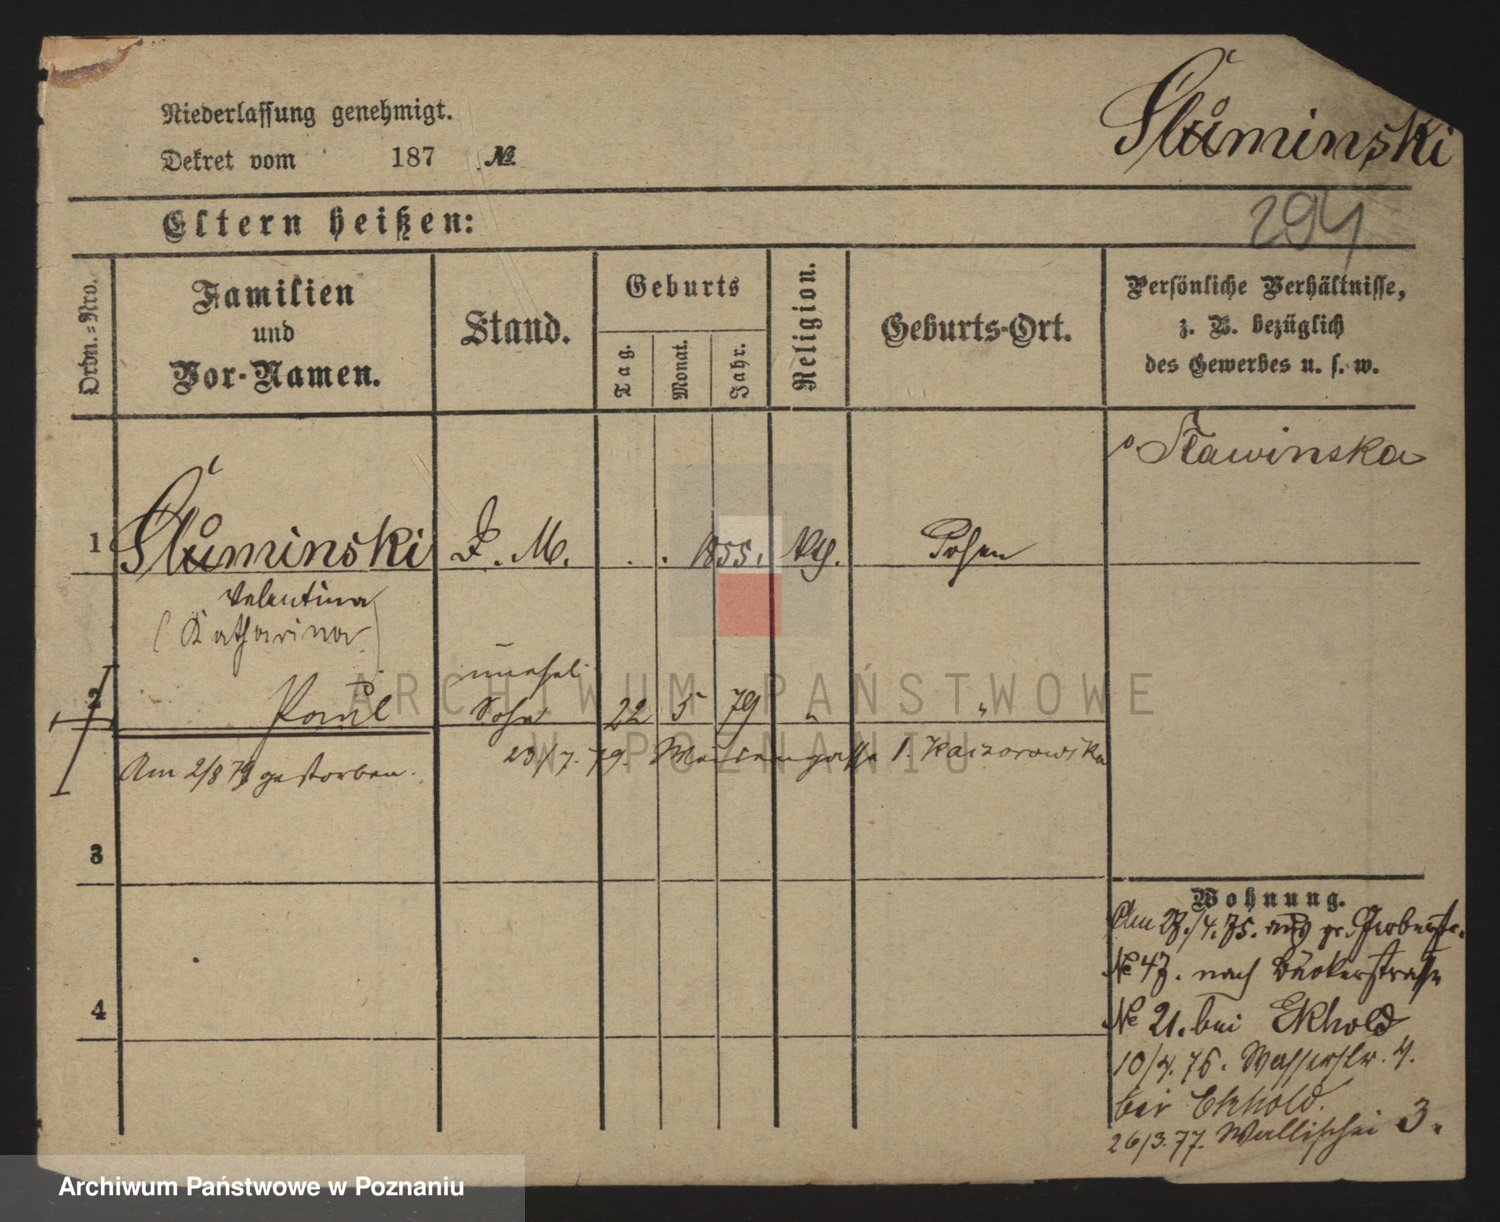 Niederlassung genehmigt.
Dekret vom 187 №
Sluminski
294
Eltern heißen:
Ordn.=Nro.
Familien
und
Vor-Namen.
Stand.
Geburts
Tag.
Monat.
Jahr.
Religion.
Geburts-Ort.
Persönliche Verhältnisse,
z. B. bezüglich
des Gewerbes u. s. w.
Sławinska
1 Sluminski D. M. . . 1855. kth. Posen
Valentina
(Katharina)
unehel.
2 Paul Sohn 22 5 79 " "
23/7. 79. Kaczorowska
Am 2/8 79 gestorben.
3
4
Wohnung.
Am 27./4. 75. aus gr. Gerberstr.
№ 47. nach Bäckerstraße
№ 21. bei Ekhold
10/4. 76. Wasserstr. 4.
bei Ekhold.
26/3. 77. Wallischei 3.
ARCHIWUM PAŃSTWOWE
W POZNANIU
Archiwum Państwowe w Poznaniu